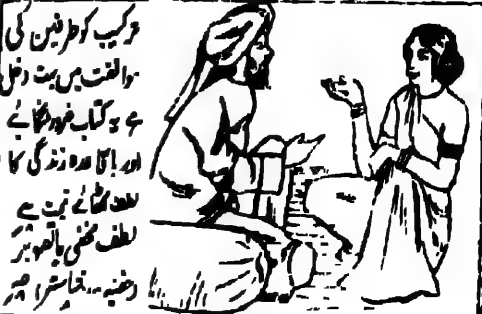 ترکیب کو طرفین کی
موافقت میں بہت دخل
ہے یہ کتاب ضرور منگائیے
اور باقاعدہ زندگی کا
لطف اٹھائیے قیمت ہے
لطف مخفی باتصویر